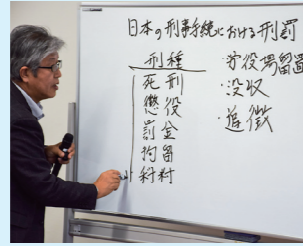 日本の刑事手続における刑罰
刑種
死刑
懲役
罰金
拘留
科料
・労役場留置
・没収
・追徴